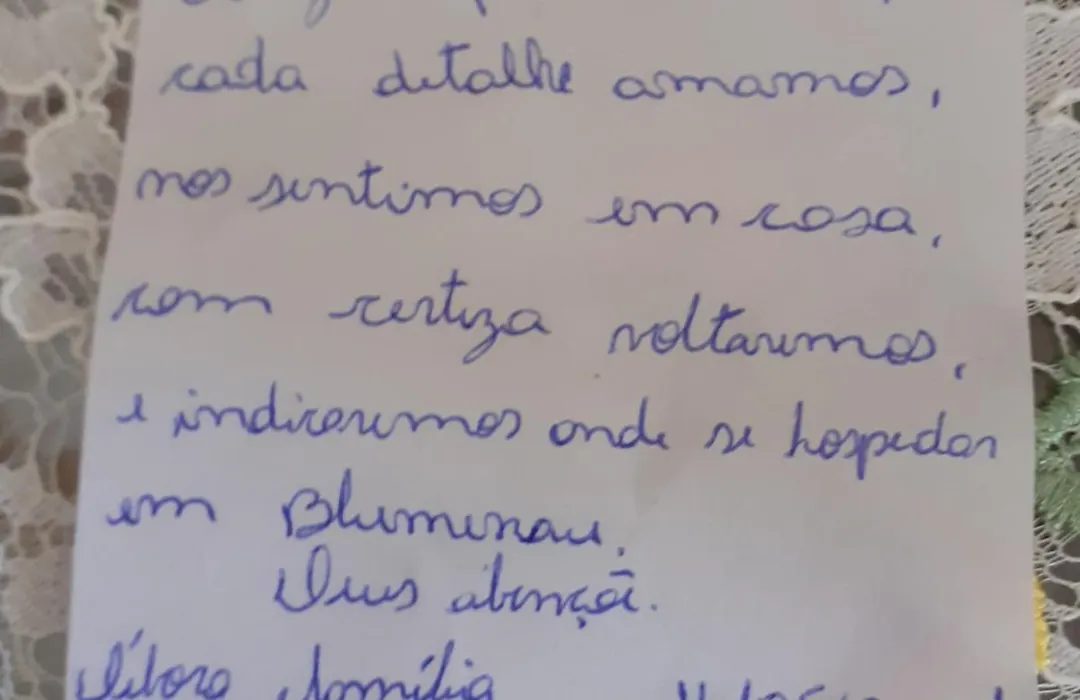 cada detalhe amamos,
nos sentimos em casa,
com certeza voltaremos,
e indicaremos onde se hospedar
em Blumenau.
Deus abençõe.
Débora família